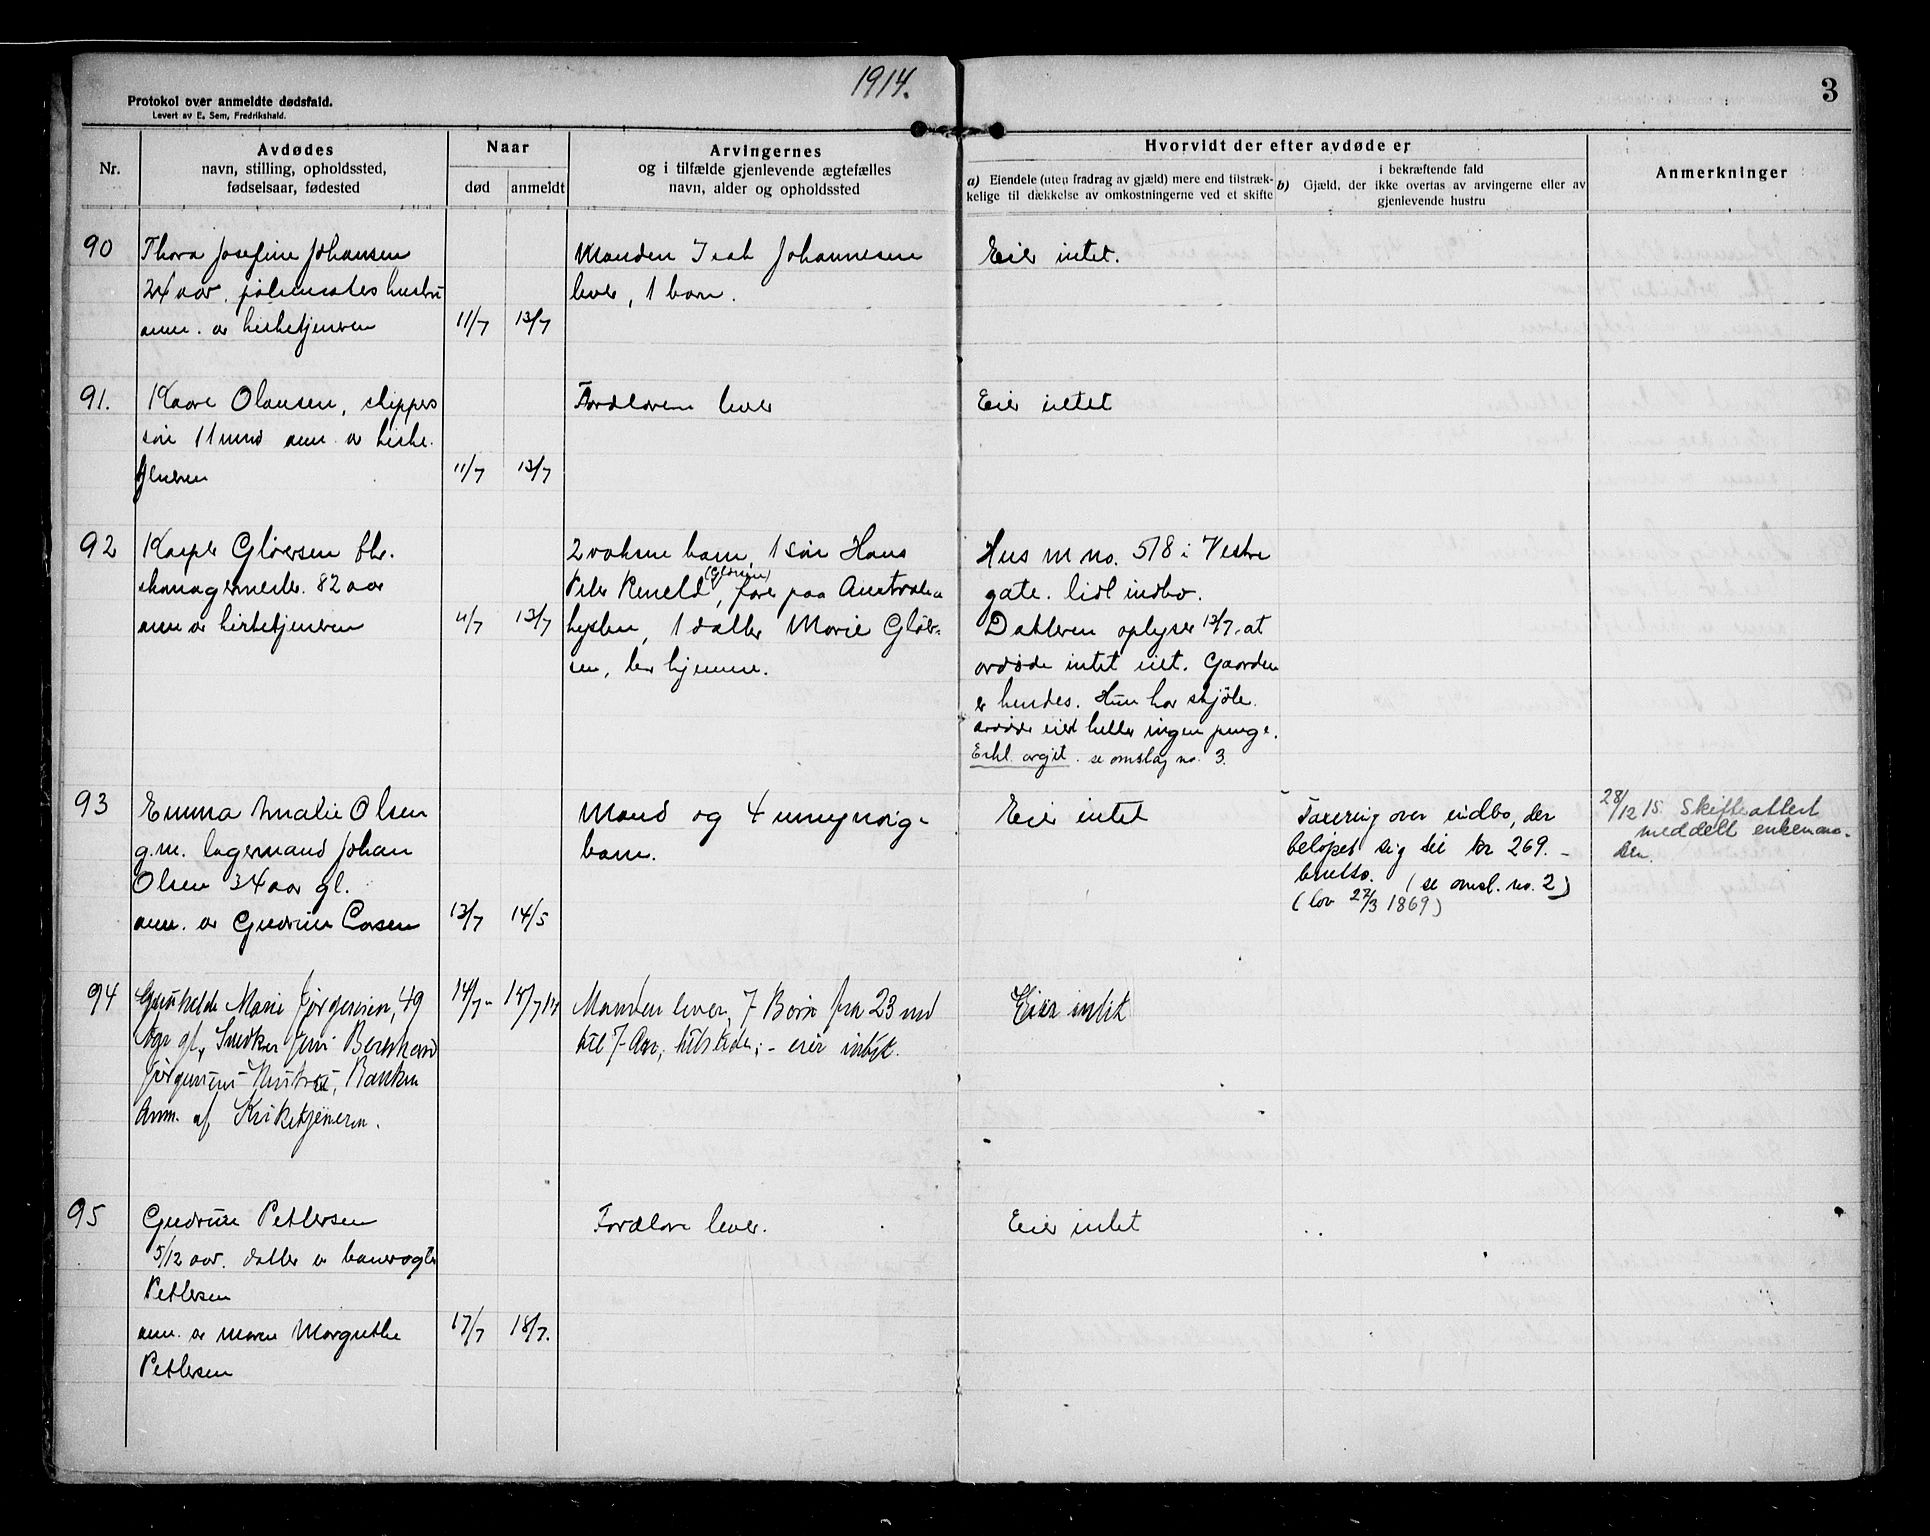 1914.
3
Protokol over anmeldte dødsfald.
Levert av E. Sem, Fredrikshald.
Nr.
Avdødes
navn, stilling, opholdssted,
fødselsaar, fødested
Naar
død
anmeldt
Arvingernes
og i tilfælde gjenlevende ægtefælles
navn, alder og opholdssted
Hvorvidt der efter avdøde er
a) Eiendele (uten fradrag av gjæld) mere end tilstræk-
kelige til dækkelse av omkostningerne ved et skifte
i bekræftende fald
b) Gjæld, der ikke overtas av arvingerne eller av
gjenlevende hustru
Anmerkninger
90
Thora Josefine Johansen
24 aar. hustru
anm. av kirketjeneren
11/7
13/7
Manden Isak Johannesen
lever, 1 barn.
Eier intet.
91.
Kaare Olausen, skippers
søn 11 mnd anm. av kirke-
tjeneren
11/7
13/7
Forældrene lever
Eier intet
92
Kasper Glørsen fhv.
skomagermester. 82 aar
anm av kirketjeneren
11/7
13/7
2 voksne barn, 1 søn Hans
Peter (Glørsen), farer paa Australia
kysten, 1 datter Marie Glør-
sen, bor hjemme.
Hus m no. 518 i Vestre
gate. lidt indbo.
Datteren oplyser 13/7 at
avdøde intet eiet. Gaarden
er hendes. Hun har skjøte.
avdøde eiet heller ingen penge.
Erkl. avgit. se omslag no. 3.
93
Emma Amalie Olsen
g.m. lagermand Johan
Olsen 34 aar gl.
anm. av Gudrun Larsen
13/7
14/5
Mand og 4 umyndig-
barn.
Eier intet
Taxering over indbo, der
beløper sig til kr 269.-
brutto. (se omsl. no. 2)
(lov 27/3 1869)
28/12 15. Skifteattest
meddelt enkeman-
den.
94
Marie Jørgensen, 49
Aar gl, Snedker Jens Bernhard
Jørgensens Hustru, Banken
Anm. af Kirketjeneren.
14/7-
15/7 14
Manden lever, 7 Børn fra 23 ned
til 7 Aar, tilstede; - eier intet.
Eier intet
95
Gudrun Pettersen
5/12 aar. datter av banevogter
Pettersen
anm. av moren Margrethe
Pettersen
17/7
18/7.
Forældre lever.
Eier intet